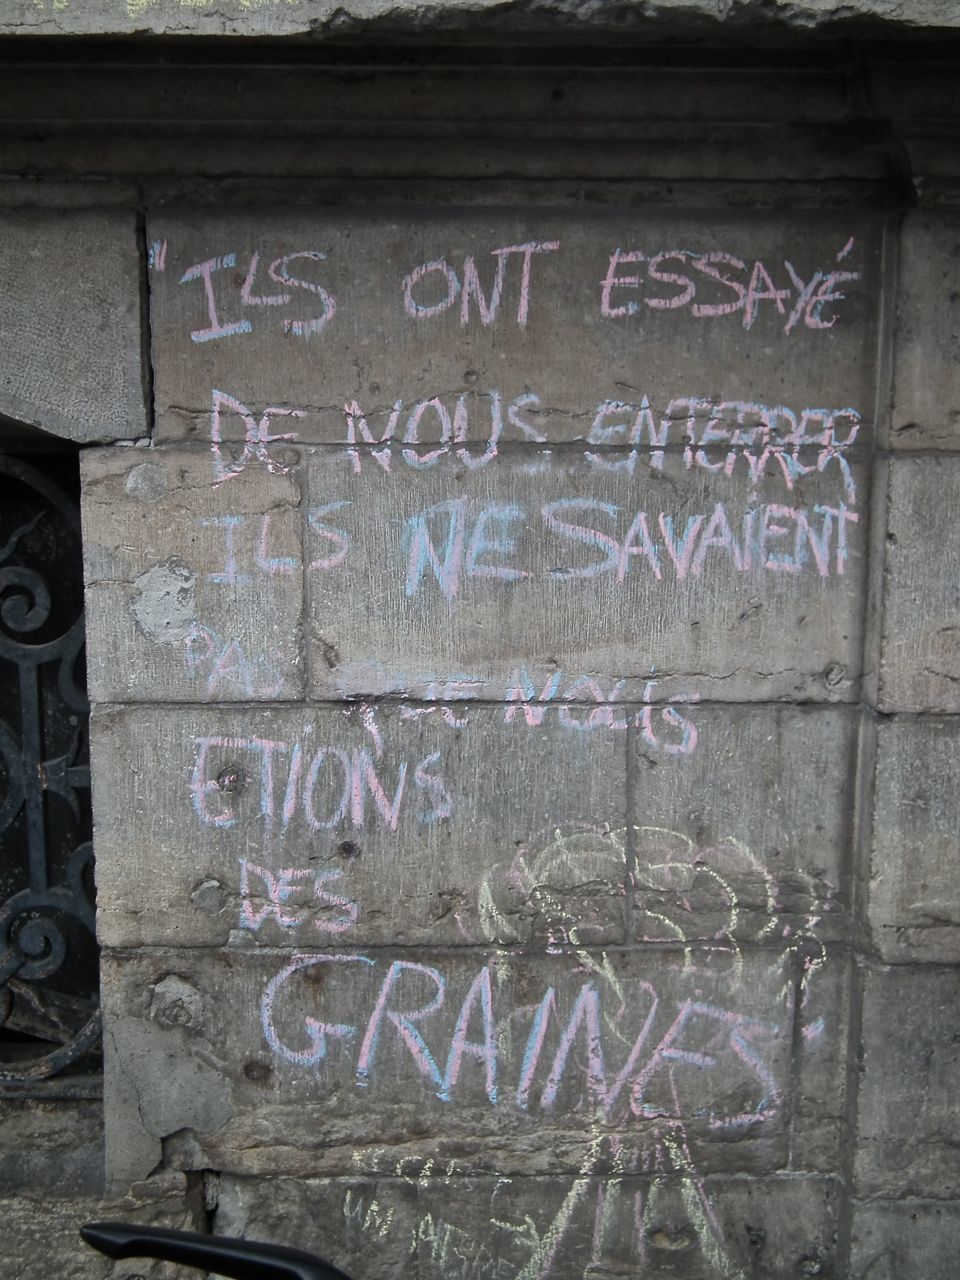 "ILS ONT ESSAYÉ
DE NOUS ENTERRER
ILS NE SAVAIENT
PAS QUE NOUS
ETIONS
DES
GRAINES"
UN